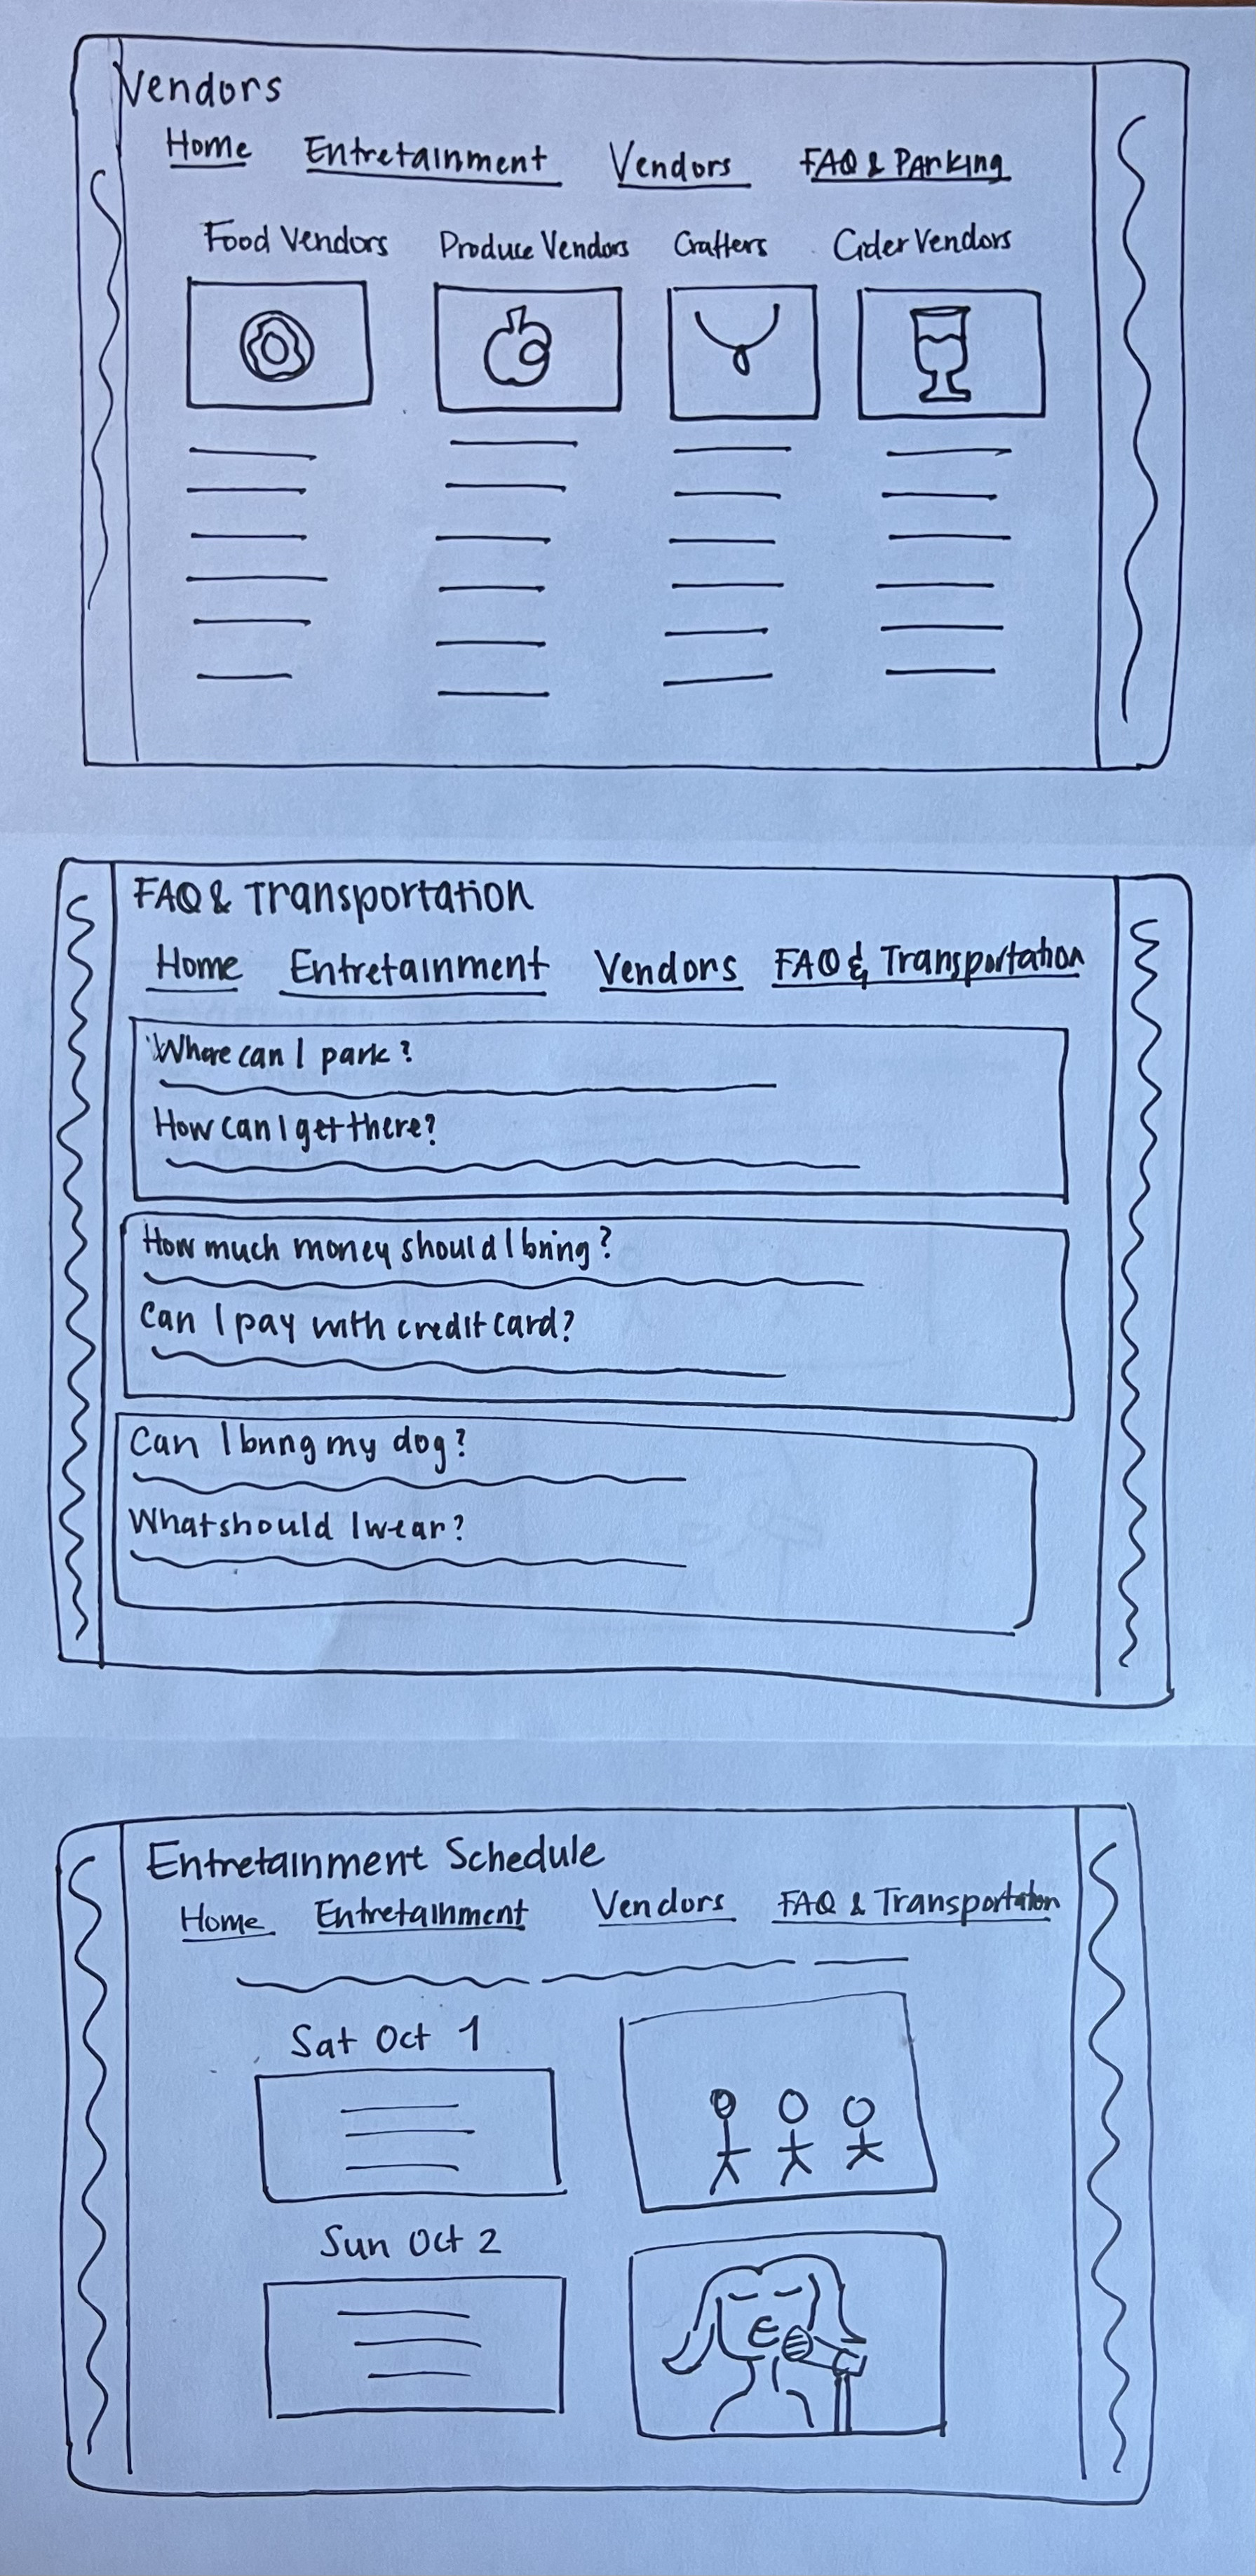 Vendors
Home Entretainment Vendors FAQ & Parking
Food Vendors Produce Vendors Crafters Cider Vendors
FAQ & Transportation
Home Entretainment Vendors FAQ & Transportation
Where can I park?
How can I get there?
How much money should I bring?
Can I pay with credit card?
Can I bring my dog?
What should I wear?
Entretainment Schedule
Home Entretainment Vendors FAQ & Transportation
Sat Oct 1
Sun Oct 2